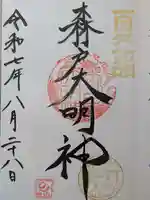 森戸大明神
令和七年八月二十八日